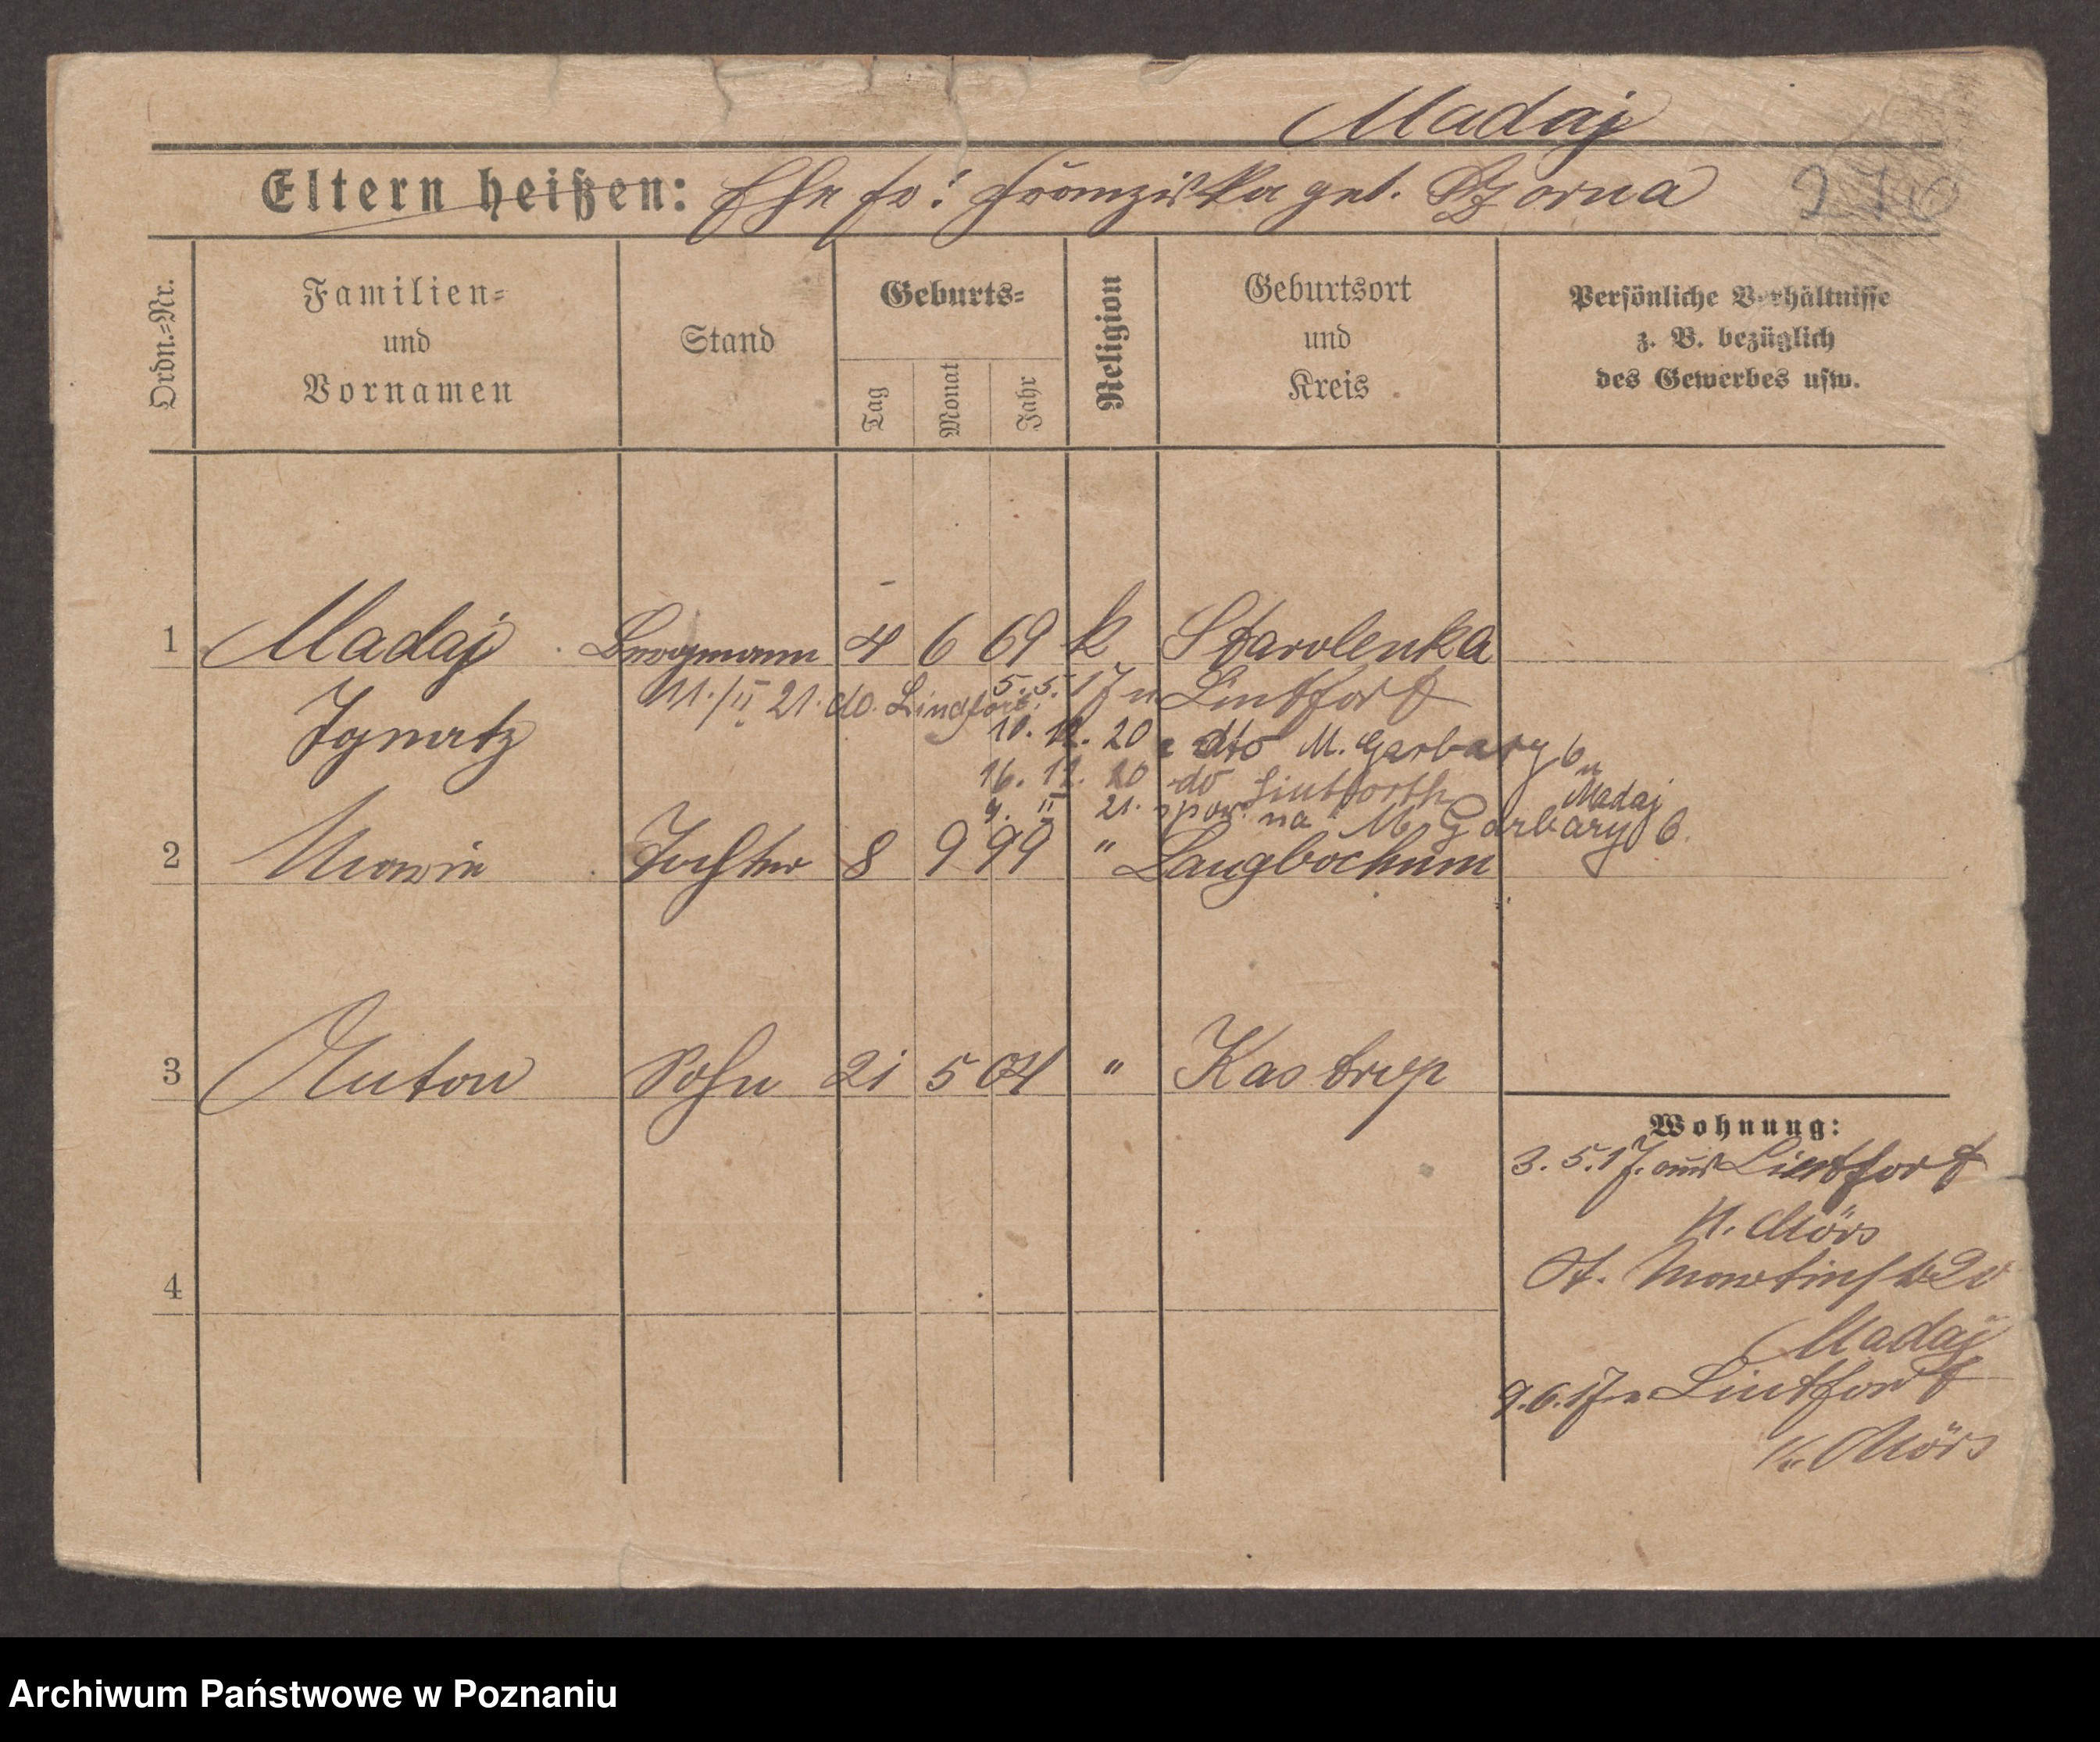 Madaj
Eltern heißen: Ehefr: Franziska geb. Szorna
Ordn.=Nr.
Familien=
und
Vornamen
Stand
Geburts=
Tag
Monat
Jahr
Religion
Geburtsort
und
Kreis
Persönliche Verhältnisse
z. B. bezüglich
des Gewerbes usw.
1 Madaj Bergmann 4 6 69 k Starolenka
5. 5. 17 n Lintfort
11./II 21. do. Lindfort.
Ignatz
10. 12. 20 dto M. Garbary 6
16. 12. 20 do Lintforth
Madaj
9. II 21. spow. na M. Garbary 6.
2 Maria Tochter 8 9 99 " Langbochum
3 Anton Sohn 21 5 04 " Kastrop
Wohnung:
3. 5. 17. aus Lintfort
K. Mörs
4
St. Martinstr 20
Madaj
9. 6. 17 n Lintfort
K. Mörs
Archiwum Państwowe w Poznaniu